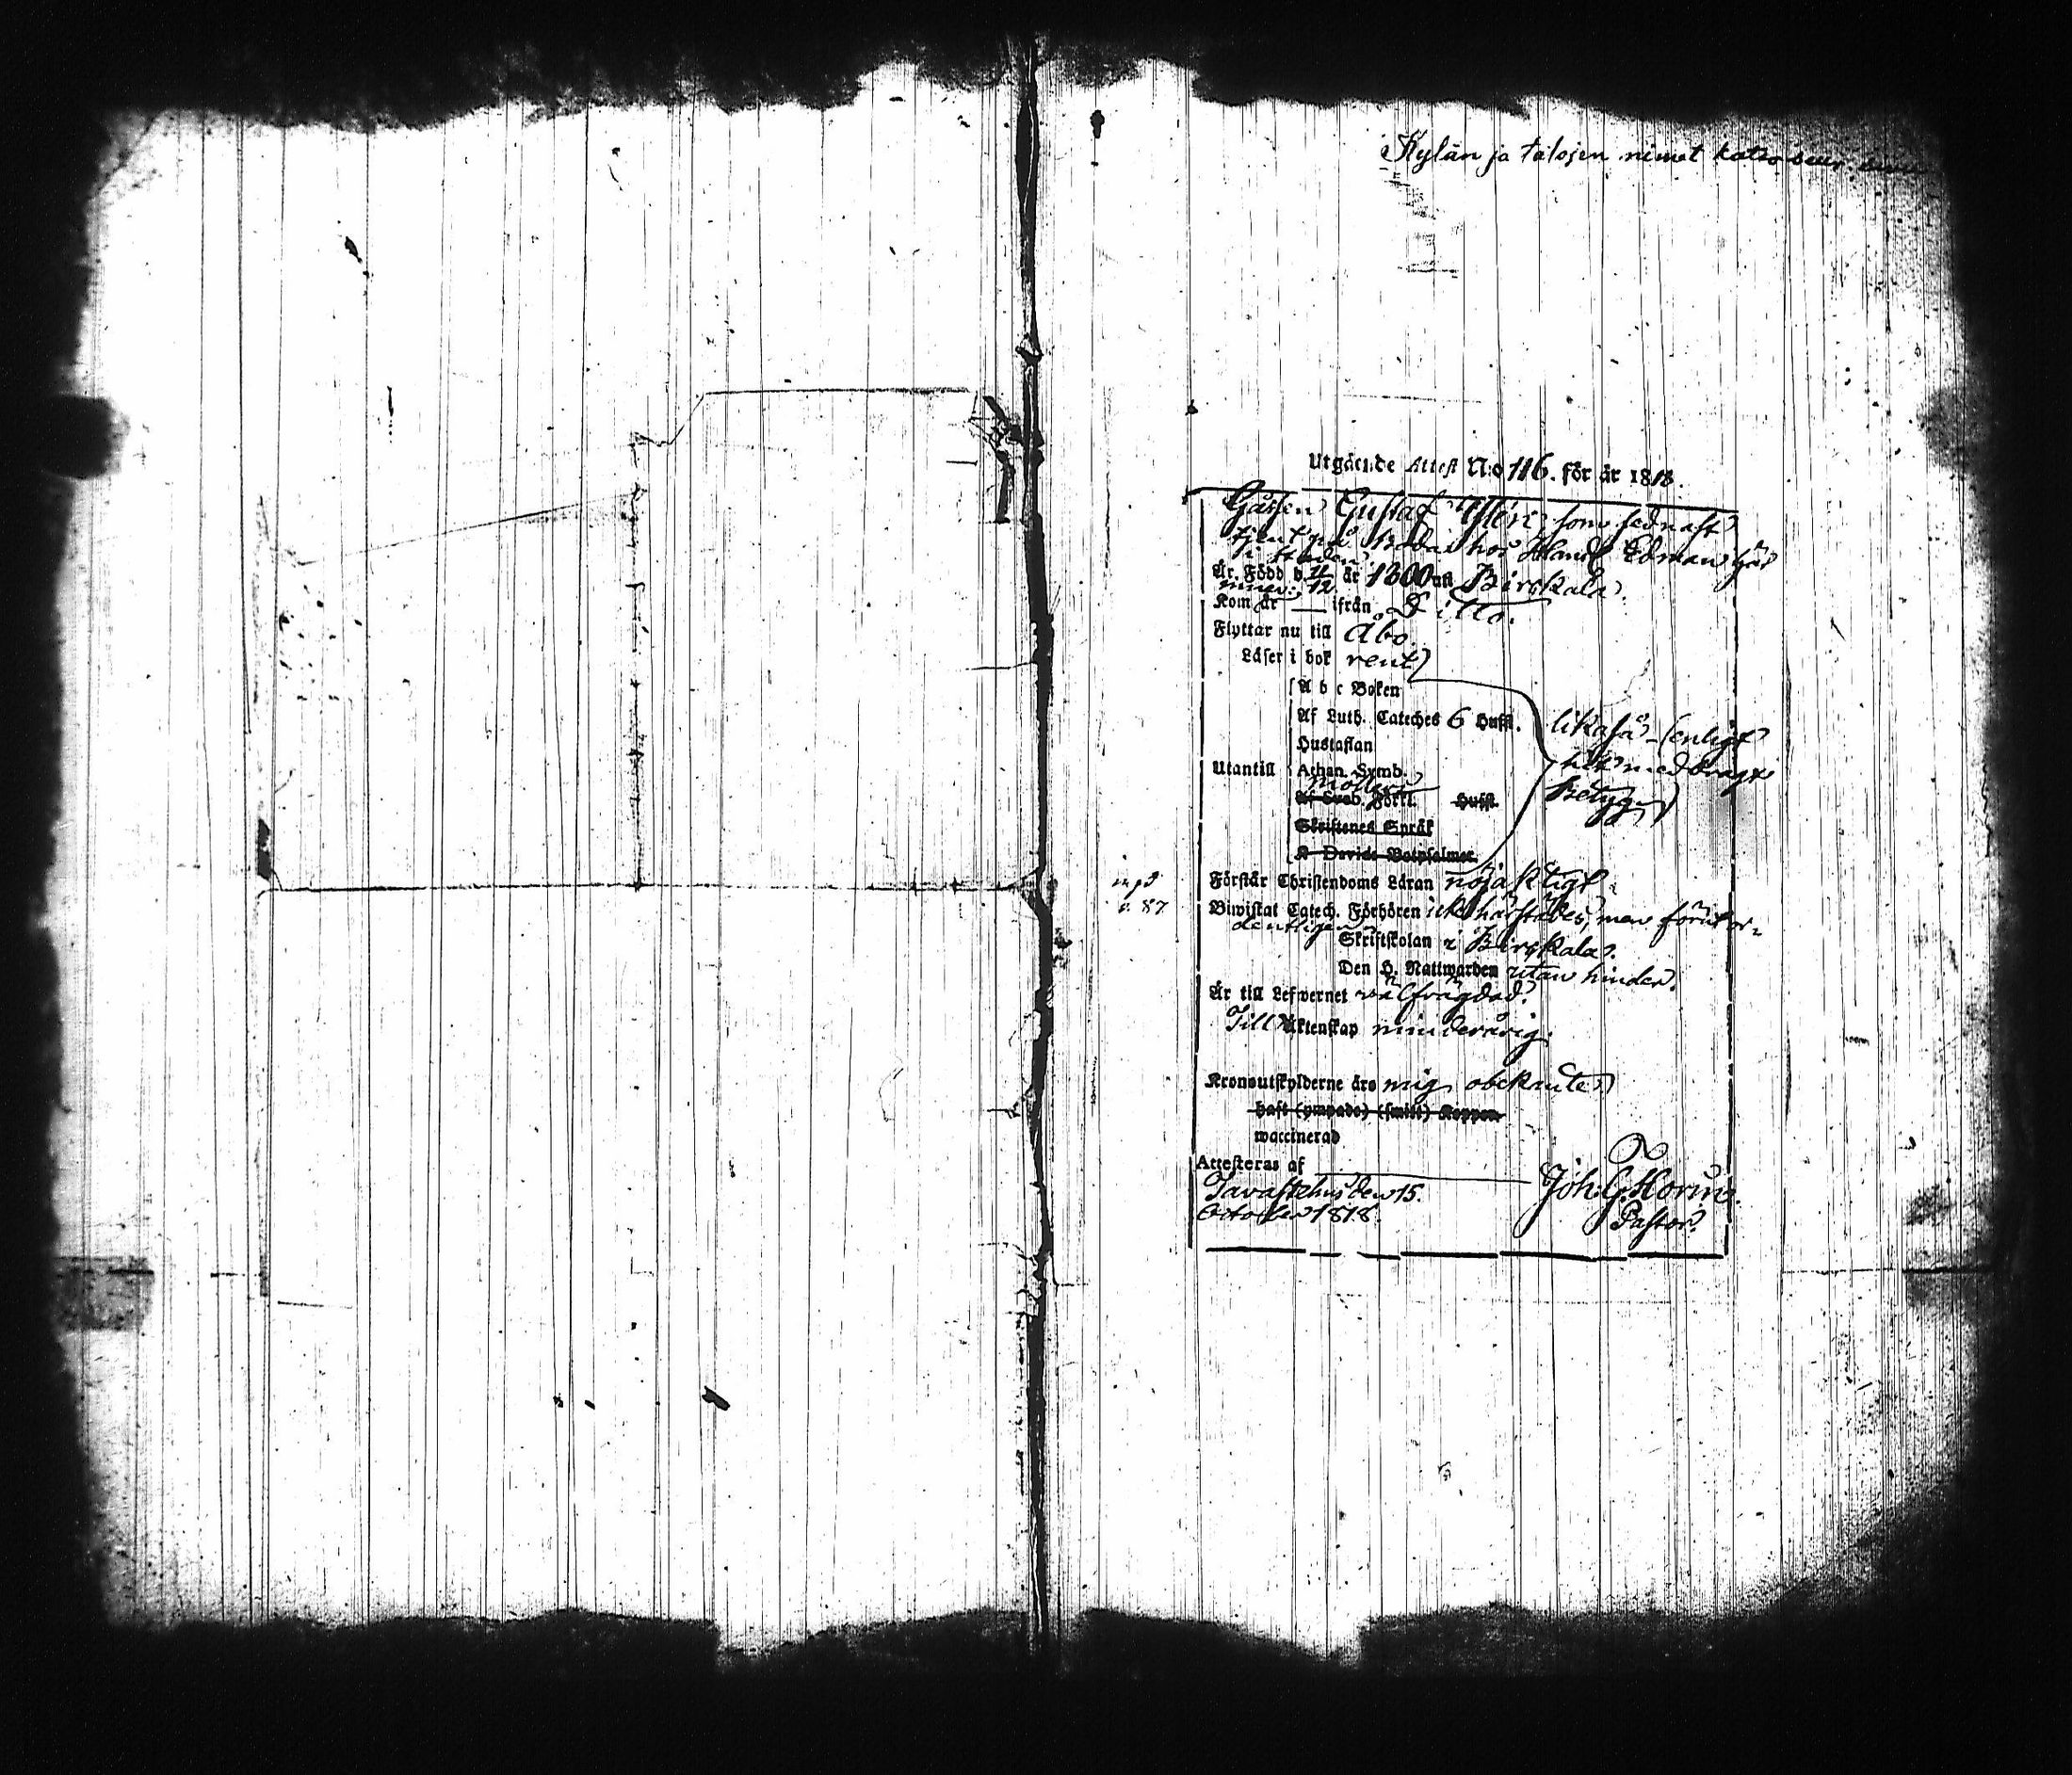 Kylän ja talojen nimet katso seur.
Utgående Attest N:o 116. för år 1818.
Gåssen Gustaf som sednast
tjent på hos Handl. Edman här
i staden
Är Född d. 11/12 år 1800 uti Birckala.
Kom år — ifrån Ditto.
Flyttar nu till Åbo.
Läser i bok rent
A b c Boken
Af Luth. Cateches 6 Hufst. likaså (enligt
Hustaflan
Utantill Athan. Symb. hit medbragt
Möllers
Af Sveb. Förkl. Hufst. Betyg)
Skriftenes Språk
K Davids Botpsalmer.
Förstår Christendoms Läran nöjaktigt
Biwistat Catech. Förhören ick härstädes, men förut or-
dentligen
Skriftskolan i Birckala.
Den H. Nattwarden utan hinder.
Är till Lefvernet välfrägdad.
Till Äktenskap minderårig.
Kronoutskylderne äro mig obekante
haft (ympade) (smitt) Koppor
waccinerad
Attesteras af
Tavastehus den 15. Joh: G. Florin.
October 1818. Pastor.